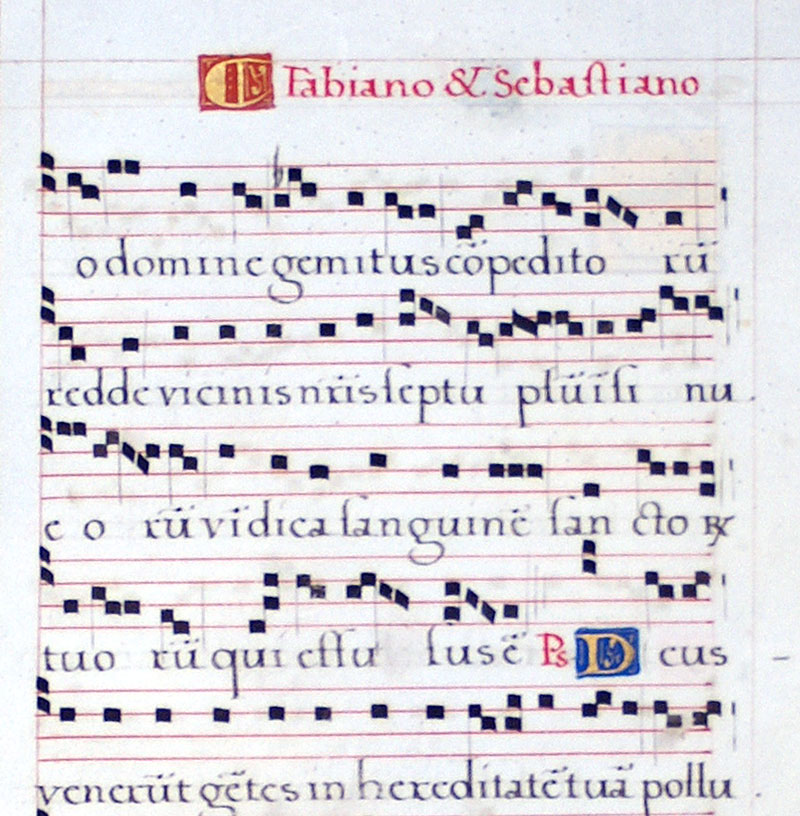 Fabiano & Sebastiano
o domine gemitus cōpedito rū̄
redde vicinis nr̄is septu plū̄ i si nu
e o rū̄ vīdica sanguinē sancto ꝶ
tuo rū̄ qui effu sus ē Ps D eus
venerūt gētes in hereditatē tuā pollu